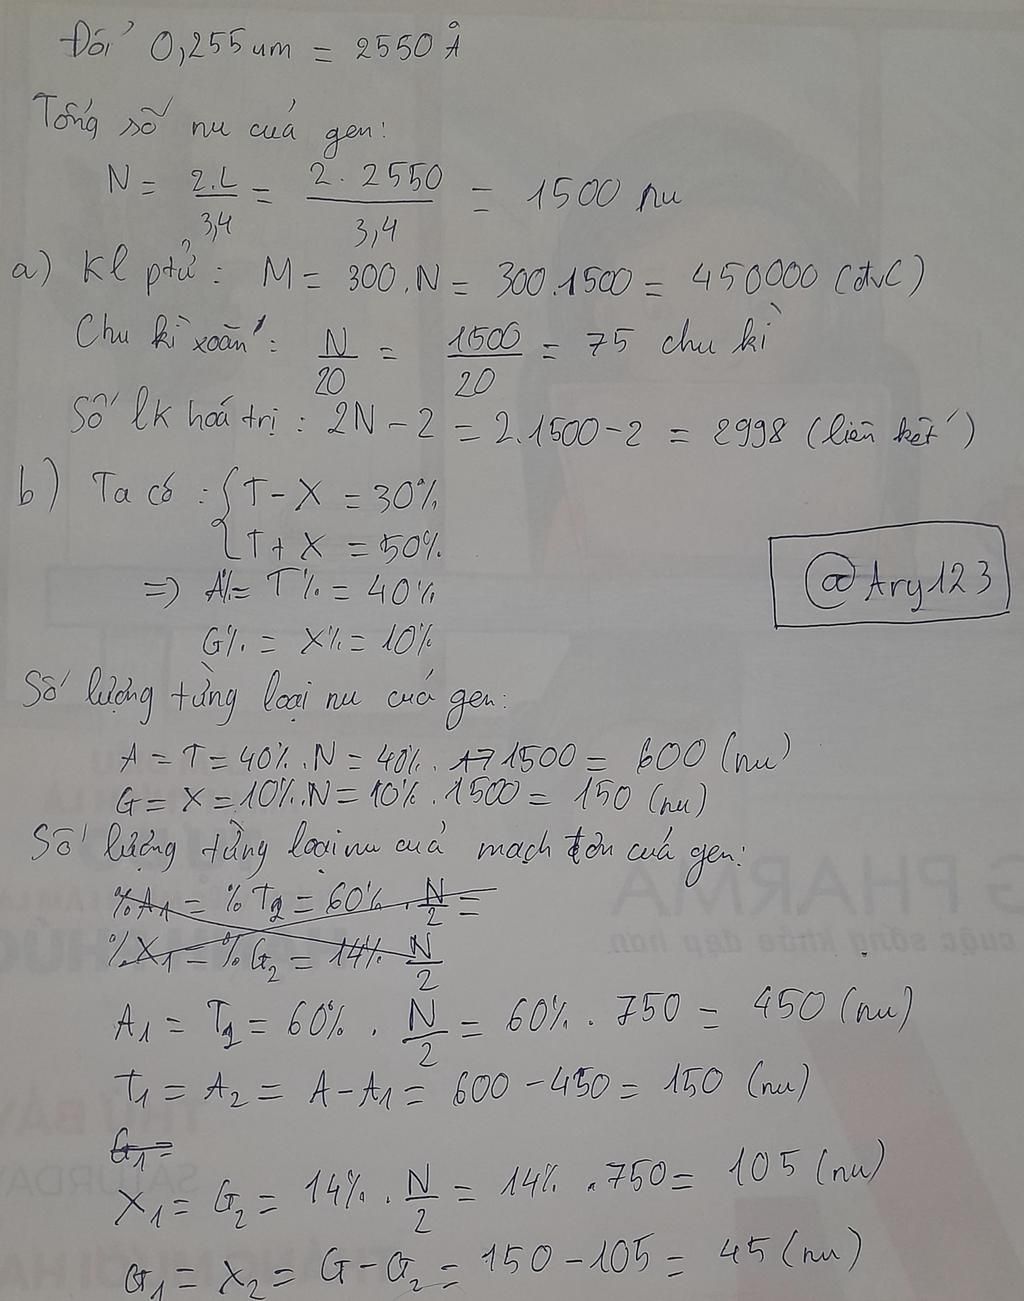 Đổi 0,255 um = 2550 Å
Tổng số nu của gen:
N = 2.L/3,4 = 2.2550/3,4 = 1500 nu
a) Kl ptử: M = 300.N = 300.1500 = 450000 (đvC)
Chu kì xoắn: N/20 = 1500/20 = 75 chu kì
Số lk hoá trị: 2N - 2 = 2.1500-2 = 2998 (liên kết)
b) Ta có: { T - X = 30%
T + X = 50%
=> A% = T% = 40%
@Ary123
G% = X% = 10%
Số lượng từng loại nu của gen:
A = T = 40%.N = 40%.1500 = 600 (nu)
G = X = 10%.N = 10%.1500 = 150 (nu)
Số lượng từng loại nu của mạch đơn của gen:
%A1 = %T2 = 60%.N/2 =
%X1 = %G2 = 14% N/2
A1 = T2 = 60%.N/2 = 60%.750 = 450 (nu)
T1 = A2 = A - A1 = 600 - 450 = 150 (nu)
G1 =
X1 = G2 = 14%.N/2 = 14%.750 = 105 (nu)
G1 = X2 = G - G2 = 150 - 105 = 45 (nu)